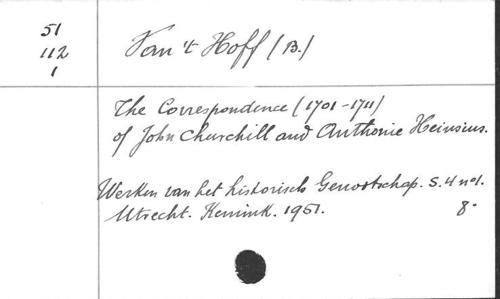 51
112
1
Van 't Hoff (B.)
The Correspondence (1701-1711)
of John Churchill and Anthonie Heinsius.
Werken van het historisch Genootschap. S. 4 no 1.
Utrecht. Kemink. 1951. 8°